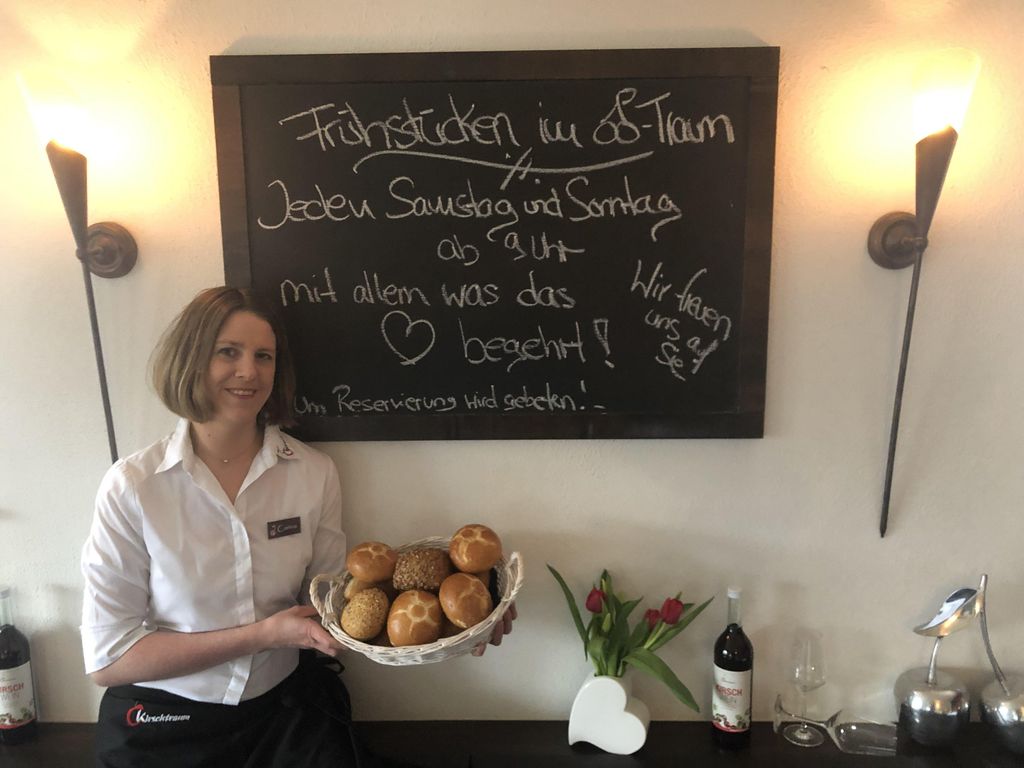 Frühstücken im -Traum
Jeden Samstag und Sonntag
ab 9 Uhr
mit allem was das
begehrt!
Wir freuen
uns auf
Sie!
Um Reservierung wird gebeten!
Kirschtraum
KIRSCH
WEIN
KIRSCH